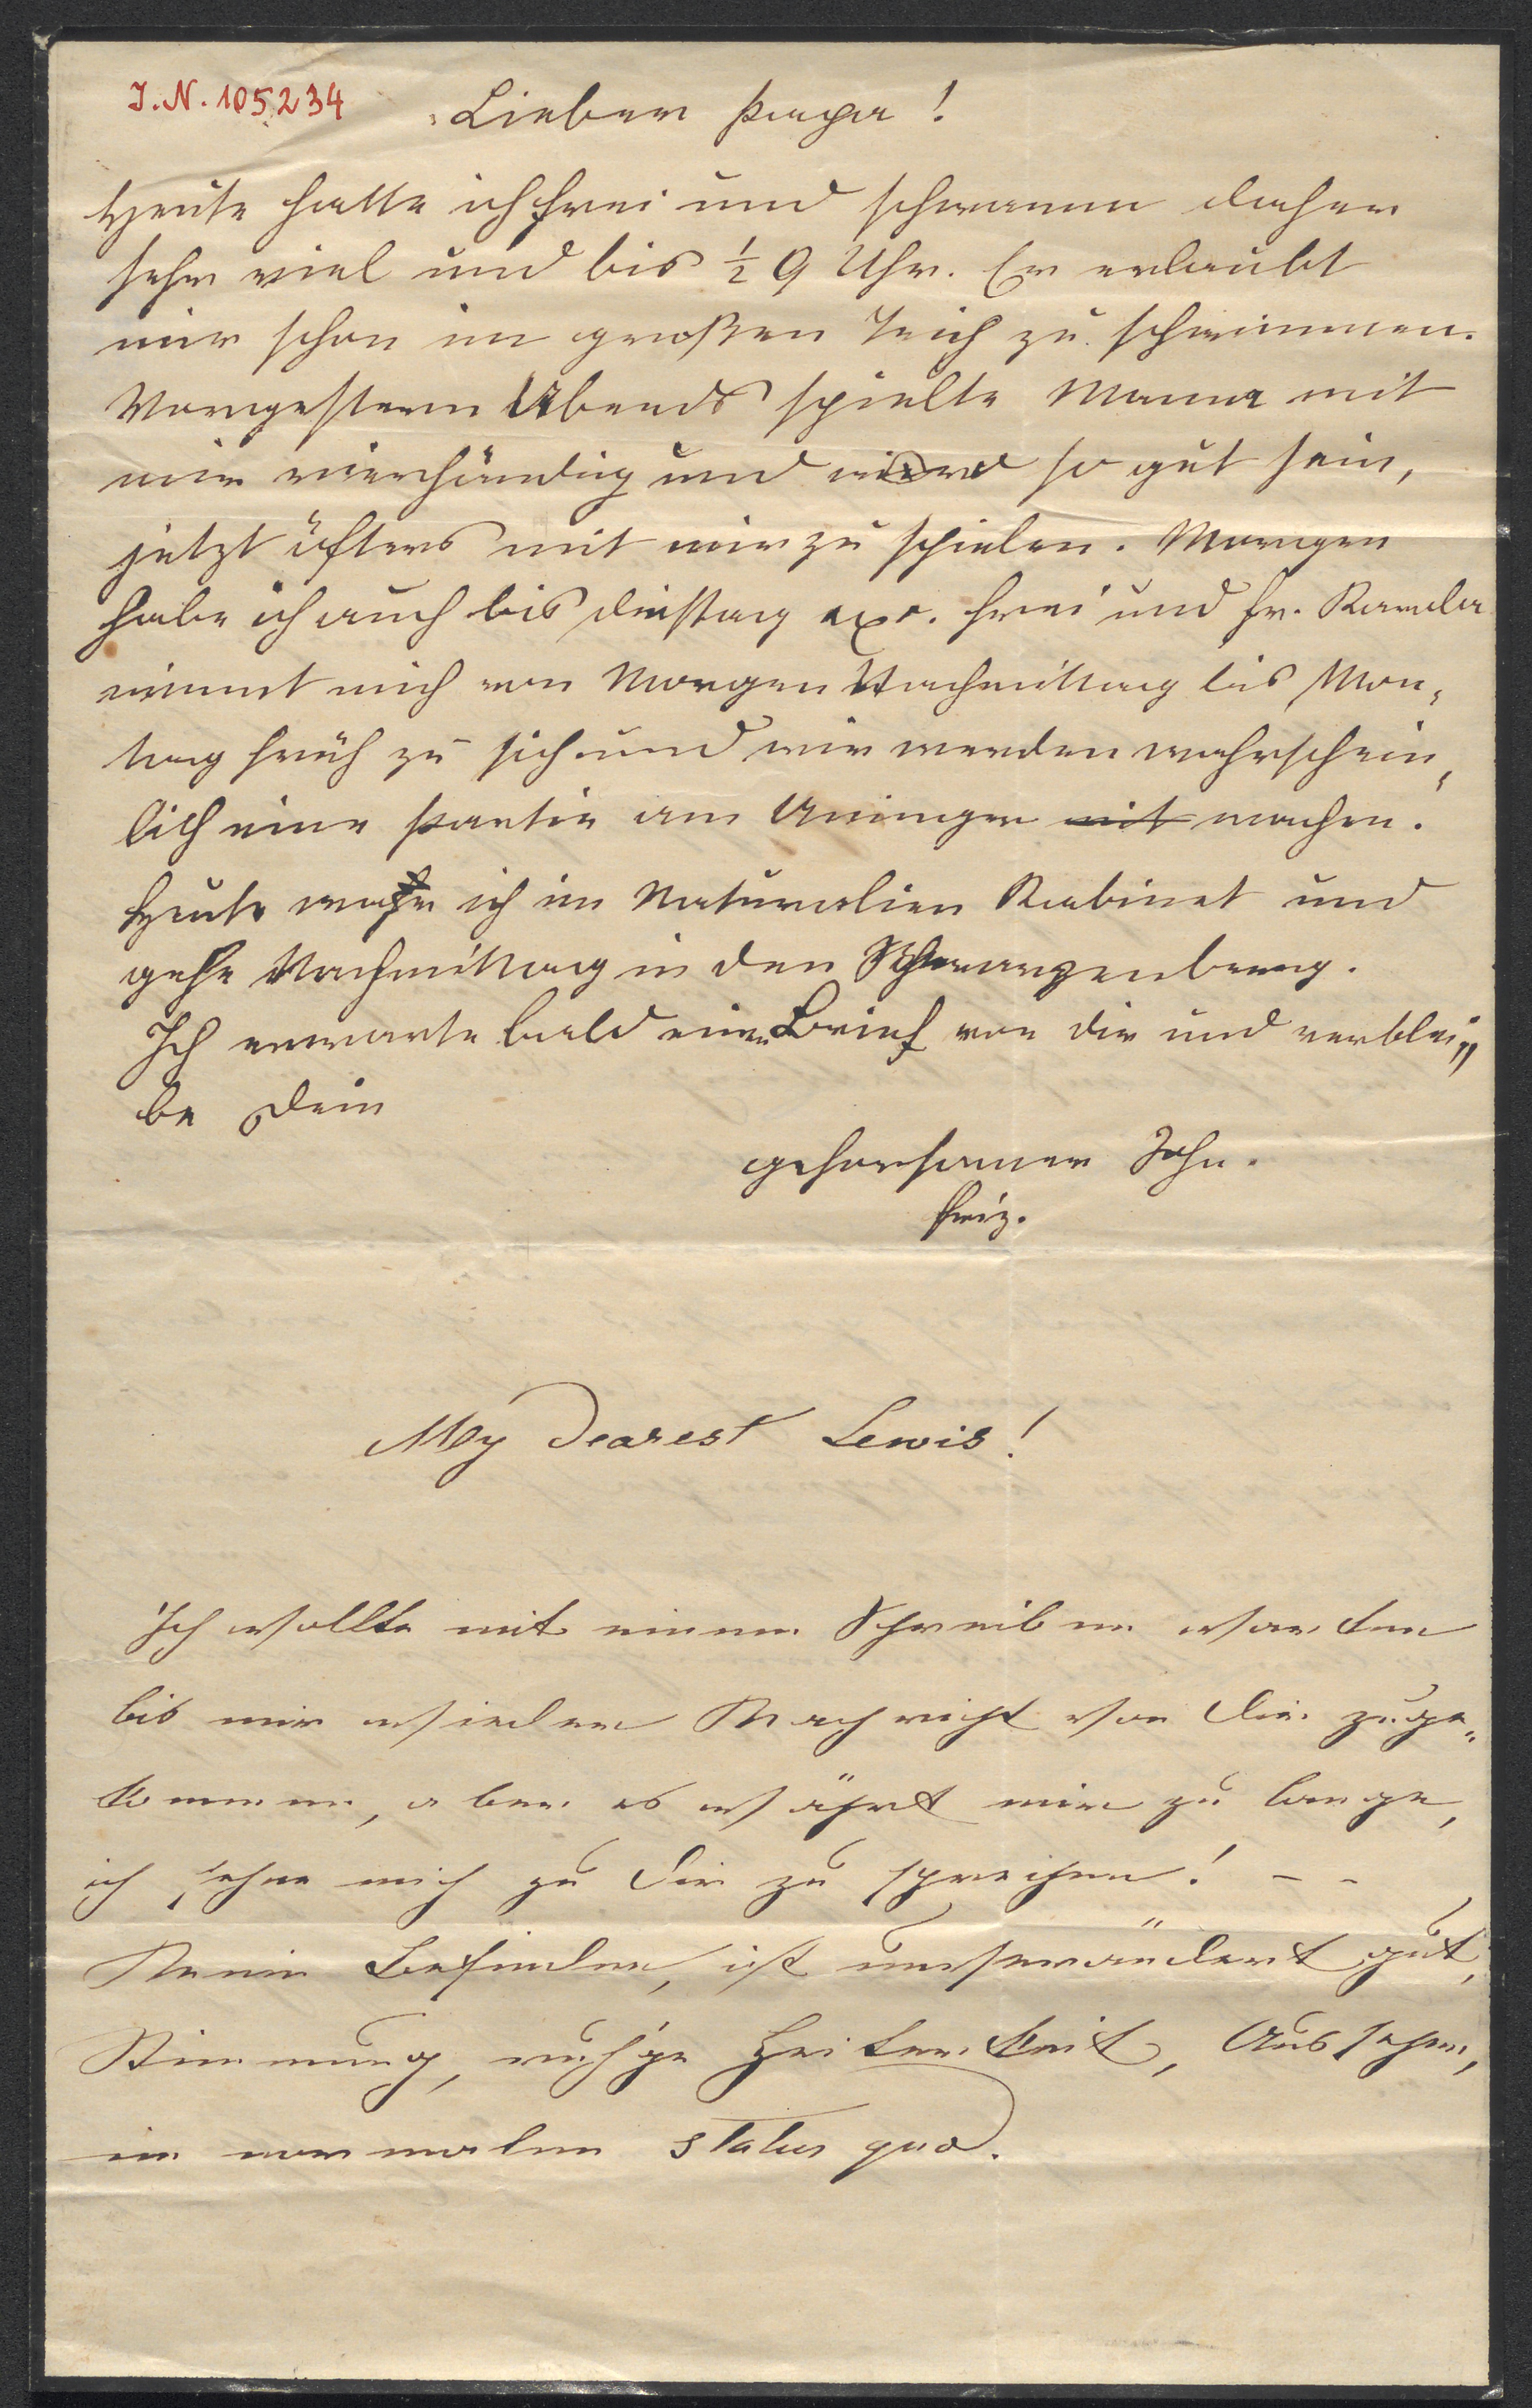 I.N. 105234
Lieber Papa!
Heute hatte ich frei und schwamm daher
sehr viel und bis ½ 9 Uhr. Er erlaubt
mir schon im großen Teich zu schwimmen.
Vorgestern Abends spielte Mama mit
mir vierhändig und wird so gut sein,
jetzt öfters mit mir zu spielen. Morgen
habe ich auch bis Dinstag frei und Hr.
nimmt mich von Morgen Nachmittag bis Mon„
tag früh zu sich und wir werden wahrschein„
lich eine Partie am Aninger mit machen.
Heute war ich im Naturalien Kabinet und
gehe Nachmittag in den Schwarzenberg.
Ich erwarte bald einen Brief von dir und verblei„
be Dein
gehorsamer Sohn.
Friz.
My dearest Lewis!
Ich wollte mit einem Schreiben warten
bis mir wieder Nachricht von Dir zuge„
kommen, aber es währt mir zu lange,
ich sehne mich zu Dir zu sprechen! – –
Mein Befinden, ist unverändert gut,
Stimmung, ruh'ge Heiterkeit, Aussehen,
im normalen status quo.